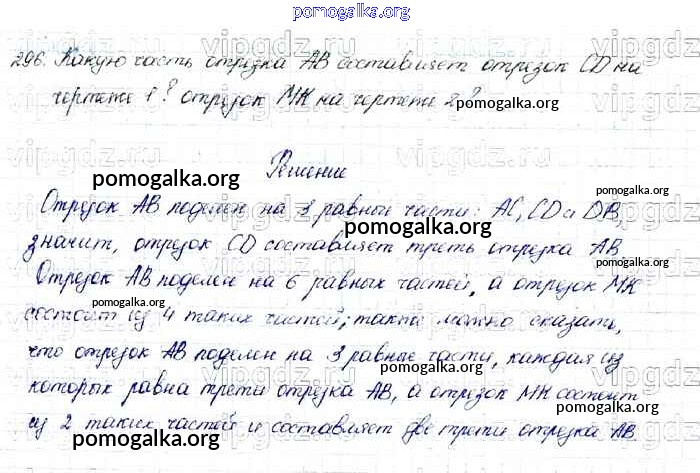 pomogalka.org
296. Какую часть отрезка АВ составляет отрезок CD на
чертеже 1? отрезок МК на чертеже 2?
pomogalka.org
Решение
pomogalka.org
Отрезок АВ поделен на 3 равные части: АС, CD и DB,
pomogalka.org
значит, отрезок CD составляет треть отрезка АВ.
pomogalka.org
Отрезок АВ поделен на 6 равных частей, а отрезок МК
pomogalka.org
состоит из 4 таких частей; также можно сказать,
что отрезок АВ поделен на 3 равные части, каждая из
pomogalka.org
которых равна трети отрезка АВ, а отрезок МК состоит
из 2 таких частей и составляет две трети отрезка АВ.
pomogalka.org
pomogalka.org